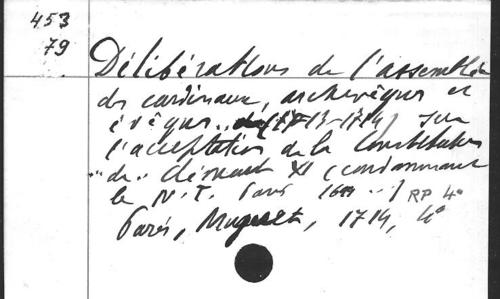 453
79
Délibérations de l'assemblée
des cardinaux, archevêques et
évêques.. (1713-1714) sur
l'acceptation de la Constitution
"de" Clément XI (condamnant
le N.T. Paris 1699 ...) RP 4°
Paris, Muguet, 1714, 4°